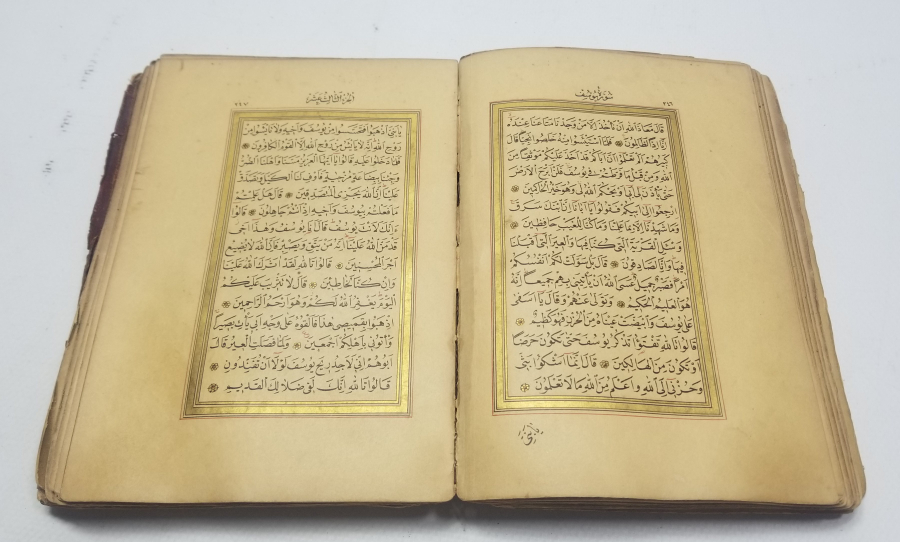 سُورَةُ يُوسُفَ
٢٦٦
قَالَ مَعَاذَ اللهِ اَنْ نَأْخُذَ اِلَّا مَنْ وَجَدْنَا مَتَاعَنَا عِنْدَهُ
اِنَّا اِذًا لَظَالِمُونَ ۞ فَلَمَّا اسْتَيْئَسُوا مِنْهُ خَلَصُوا نَجِيًّا قَالَ
كَبِيرُهُمْ اَلَمْ تَعْلَمُوا اَنَّ اَبَاكُمْ قَدْ اَخَذَ عَلَيْكُمْ مَوْثِقًا مِنَ
اللهِ وَمِنْ قَبْلُ مَا فَرَّطْتُمْ فِي يُوسُفَ فَلَنْ اَبْرَحَ الْاَرْضَ
حَتَّى يَأْذَنَ لِي اَبِي اَوْ يَحْكُمَ اللهُ لِي وَهُوَ خَيْرُ الْحَاكِمِينَ ۞
اِرْجِعُوا اِلَى اَبِيكُمْ فَقُولُوا يَا اَبَانَا اِنَّ ابْنَكَ سَرَقَ
وَمَا شَهِدْنَا اِلَّا بِمَا عَلِمْنَا وَمَا كُنَّا لِلْغَيْبِ حَافِظِينَ ۞
وَسْئَلِ الْقَرْيَةَ الَّتِي كُنَّا فِيهَا وَالْعِيرَ الَّتِي اَقْبَلْنَا
فِيهَا وَاِنَّا لَصَادِقُونَ ۞ قَالَ بَلْ سَوَّلَتْ لَكُمْ اَنْفُسُكُمْ
اَمْرًا فَصَبْرٌ جَمِيلٌ عَسَى اللهُ اَنْ يَأْتِيَنِي بِهِمْ جَمِيعًا اِنَّهُ
هُوَ الْعَلِيمُ الْحَكِيمُ ۞ وَتَوَلَّى عَنْهُمْ وَقَالَ يَا اَسَفَى
عَلَى يُوسُفَ وَابْيَضَّتْ عَيْنَاهُ مِنَ الْحُزْنِ فَهُوَ كَظِيمٌ ۞
قَالُوا تَاللهِ تَفْتَؤُا تَذْكُرُ يُوسُفَ حَتَّى تَكُونَ حَرَضًا
اَوْ تَكُونَ مِنَ الْهَالِكِينَ ۞ قَالَ اِنَّمَا اَشْكُوا بَثِّي
وَحُزْنِي اِلَى اللهِ وَاَعْلَمُ مِنَ اللهِ مَا لَا تَعْلَمُونَ ۞
يَا بَنِيَّ
اَلْجُزْءُ الثَّالِثُ عَشَرَ
٢٦٧
يَا بَنِيَّ اذْهَبُوا فَتَحَسَّسُوا مِنْ يُوسُفَ وَاَخِيهِ وَلَا تَايْئَسُوا مِنْ
رَوْحِ اللهِ اِنَّهُ لَا يَايْئَسُ مِنْ رَوْحِ اللهِ اِلَّا الْقَوْمُ الْكَافِرُونَ ۞
فَلَمَّا دَخَلُوا عَلَيْهِ قَالُوا يَا اَيُّهَا الْعَزِيزُ مَسَّنَا وَاَهْلَنَا الضُّرُّ
وَجِئْنَا بِبِضَاعَةٍ مُزْجَاةٍ فَاَوْفِ لَنَا الْكَيْلَ وَتَصَدَّقْ
عَلَيْنَا اِنَّ اللهَ يَجْزِي الْمُتَصَدِّقِينَ ۞ قَالَ هَلْ عَلِمْتُمْ
مَا فَعَلْتُمْ بِيُوسُفَ وَاَخِيهِ اِذْ اَنْتُمْ جَاهِلُونَ ۞ قَالُوا
ءَاِنَّكَ لَاَنْتَ يُوسُفُ قَالَ اَنَا يُوسُفُ وَهَذَا اَخِي
قَدْ مَنَّ اللهُ عَلَيْنَا اِنَّهُ مَنْ يَتَّقِ وَيَصْبِرْ فَاِنَّ اللهَ لَا يُضِيعُ
اَجْرَ الْمُحْسِنِينَ ۞ قَالُوا تَاللهِ لَقَدْ اٰثَرَكَ اللهُ عَلَيْنَا
وَاِنْ كُنَّا لَخَاطِئِينَ ۞ قَالَ لَا تَثْرِيبَ عَلَيْكُمُ
الْيَوْمَ يَغْفِرُ اللهُ لَكُمْ وَهُوَ اَرْحَمُ الرَّاحِمِينَ ۞
اِذْهَبُوا بِقَمِيصِي هَذَا فَاَلْقُوهُ عَلَى وَجْهِ اَبِي يَأْتِ بَصِيرًا
وَأْتُونِي بِاَهْلِكُمْ اَجْمَعِينَ ۞ وَلَمَّا فَصَلَتِ الْعِيرُ قَالَ
اَبُوهُمْ اِنِّي لَاَجِدُ رِيحَ يُوسُفَ لَوْلَا اَنْ تُفَنِّدُونِ ۞
قَالُوا تَاللهِ اِنَّكَ لَفِي ضَلَالِكَ الْقَدِيمِ ۞